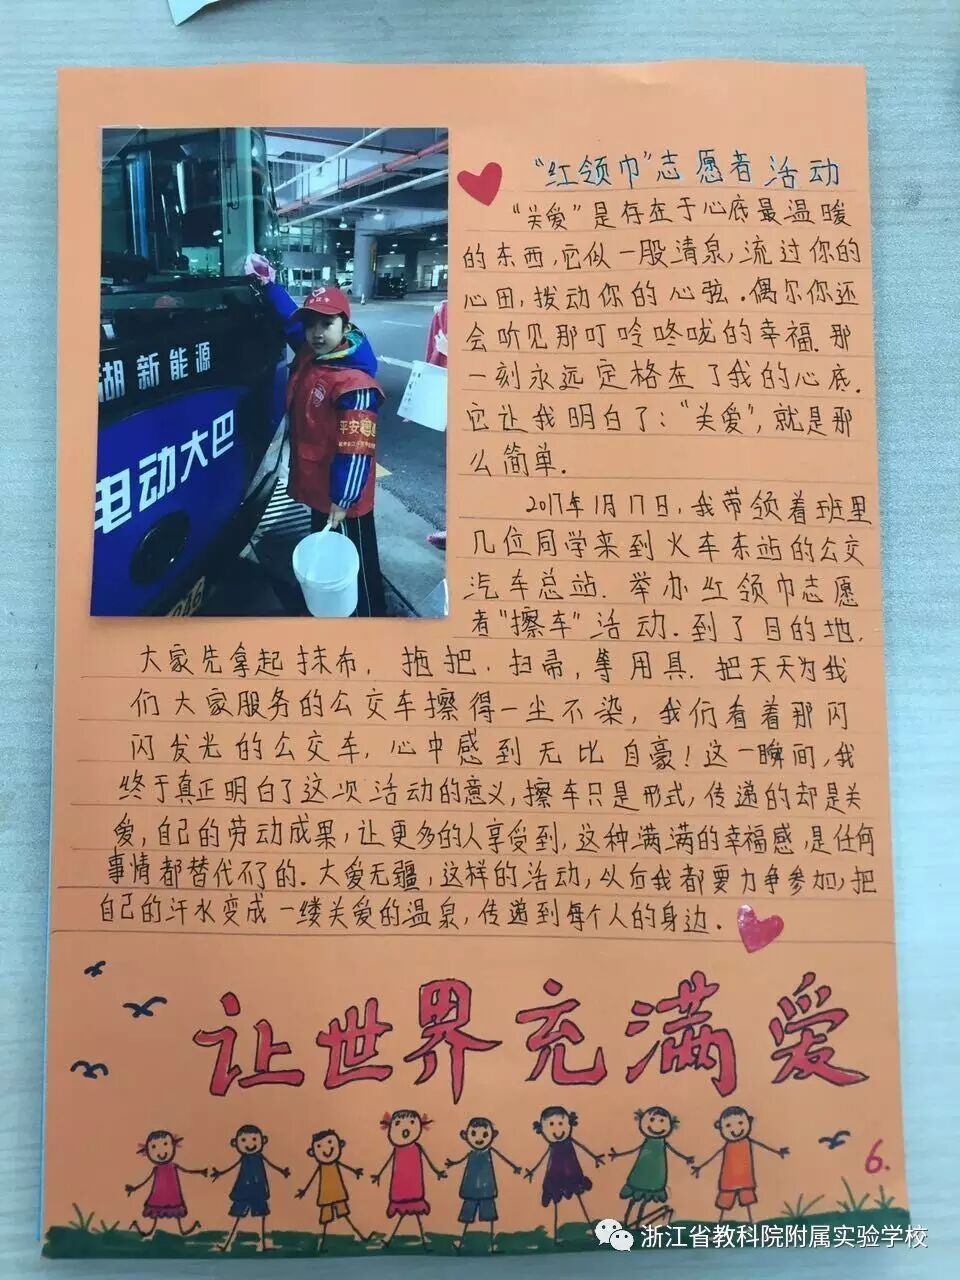 “红领巾”志愿者活动
“关爱”是存在于心底最温暖
的东西,它似一股清泉,流过你的
心田,拨动你的心弦.偶尔你还
会听见那叮呤咚咙的幸福.那
一刻永远定格在了我的心底.
它让我明白了:“关爱”,就是那
么简单.
2017年1月17日,我带领着班里
几位同学来到火车东站的公交
汽车总站.举办红领巾志愿
者“擦车”活动.到了目的地.
大家先拿起抹布,拖把.扫帚,等用具.把天天为我
们大家服务的公交车擦得一尘不染,我们看着那闪
闪发光的公交车,心中感到无比自豪!这一瞬间,我
终于真正明白了这次活动的意义,擦车只是形式,传递的却是关
爱,自己的劳动成果,让更多的人享受到,这种满满的幸福感,是任何
事情都替代不了的.大爱无疆,这样的活动,以后我都要力争参加,把
自己的汗水变成一缕关爱的温泉,传递到每个人的身边.
湖新能源
电动大巴
平安
让世界充满爱
6.
浙江省教科院附属实验学校